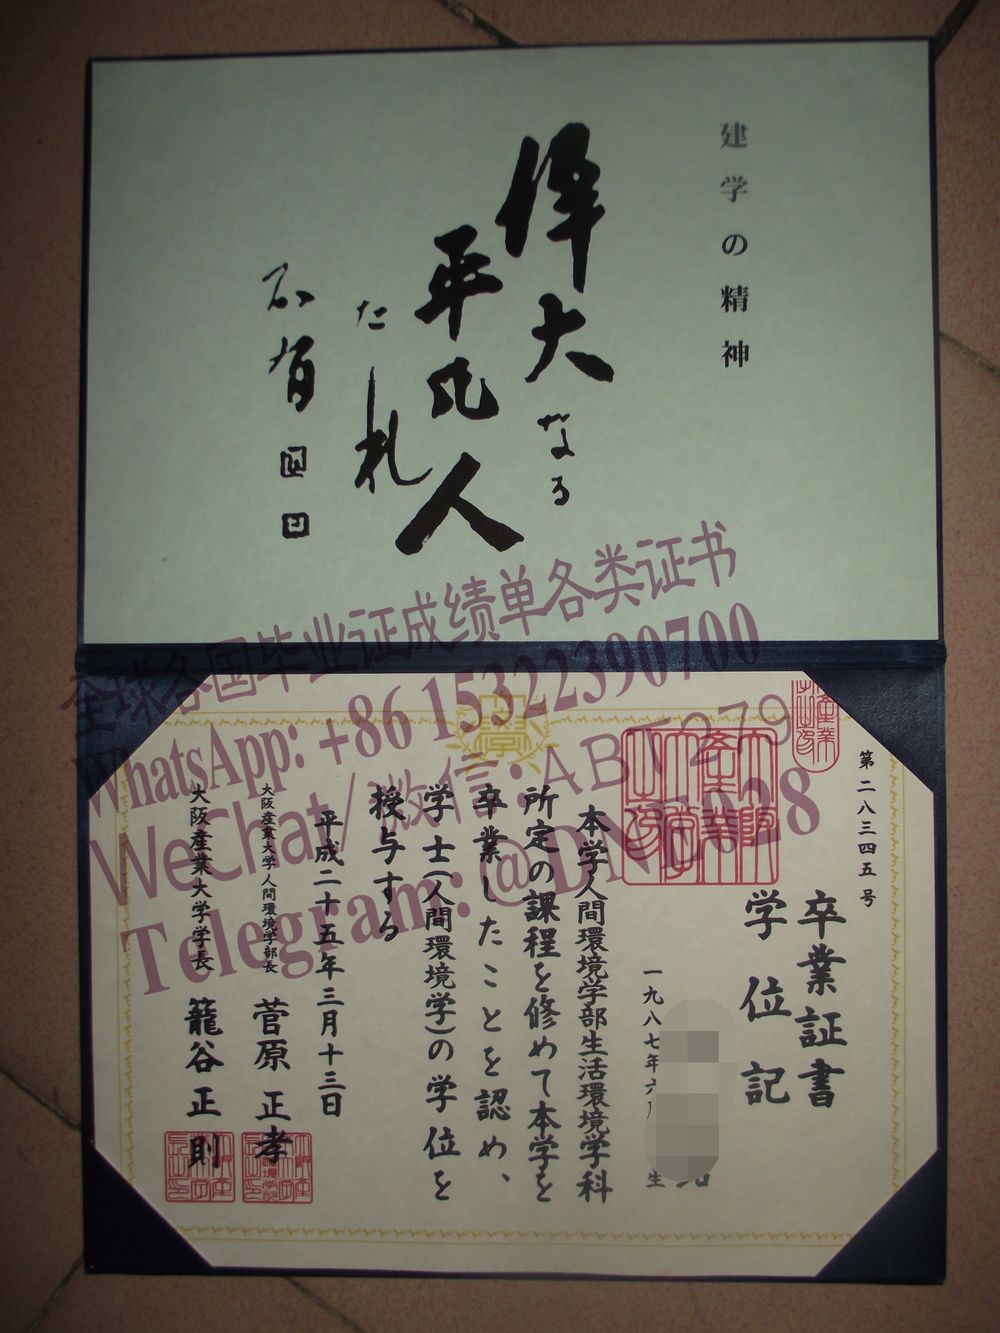 建学の精神
偉大なる
平凡人
たれ
全球各国毕业证成绩单各类证书
WhatsApp: +86 15322390700
WeChat/微信: ABT279
Telegram: @DNL028
第二八三四五号
卒業証書
学位記
一九八七年六月
生
本学人間環境学部生活環境学科
所定の課程を修めて本学を
卒業したことを認め、
学士(人間環境学)の学位を
授与する
平成二十五年三月十三日
大阪産業大学人間環境学部長 菅原正孝
大阪産業大学学長 籠谷正則